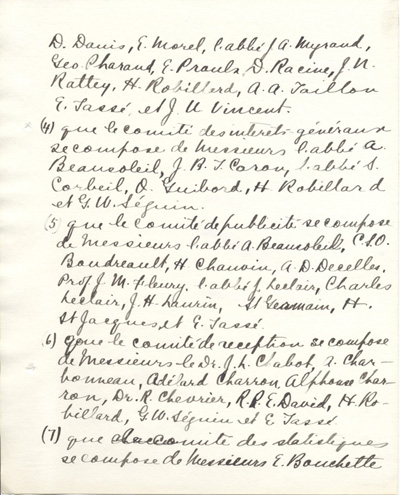 D. Danis, E. Morel, l'abbé J. A. Myrand,
Geo Charand, E. Proulx, D. Racine, J. N.
Rattey, H. Robillard, A. A. Taillon
E. Tassé, et J. U Vincent.
(4) que le comité des interets généraux
se compose de Messieurs l'abbé A.
Beausoleil, J. B. T. Caron, l'abbé S.
Corbeil, O. Guibord, H Robillard
et G. W. Séguin.
(5) que le Comité de publicité se compose
de Messieurs l'abbé A. Beausoleil, C.S.O.
Boudreault, H. Chauvin, A. D. Decelles,
Prof J. M. Fleury, l'abbé J. Leclair, Charles
Leclair, J. H. Laurin, St Germain, H.
St Jacques, et E. Tassé.
6) que le comité de reception se compose
de Messieurs le Dr. J. L. Chabot, A. Char-
bonneau, Adélard Charron, Alphonse Char-
ron, Dr. R. Chevrier, R. P. E. David, H. Ro-
billard, G. W. Séguin et E. Tassé
(7) que le comité des statistiques
se compose de Messieurs E. Bouchette